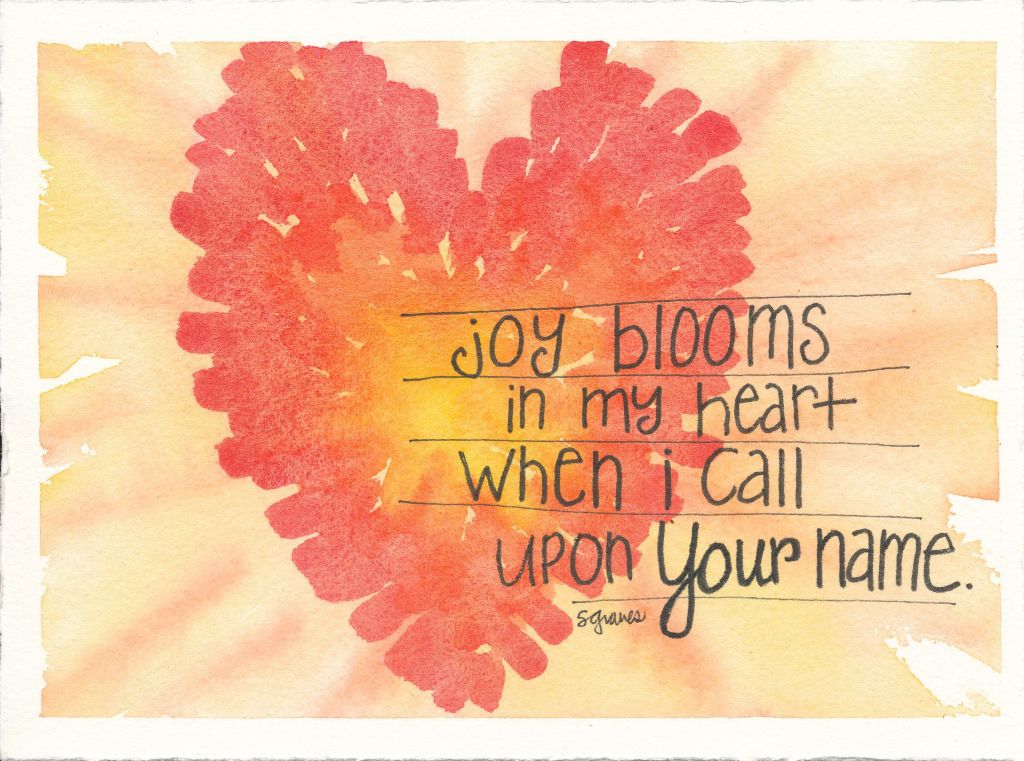 joy blooms
in my heart
when i call
upon Your name.
sgraves